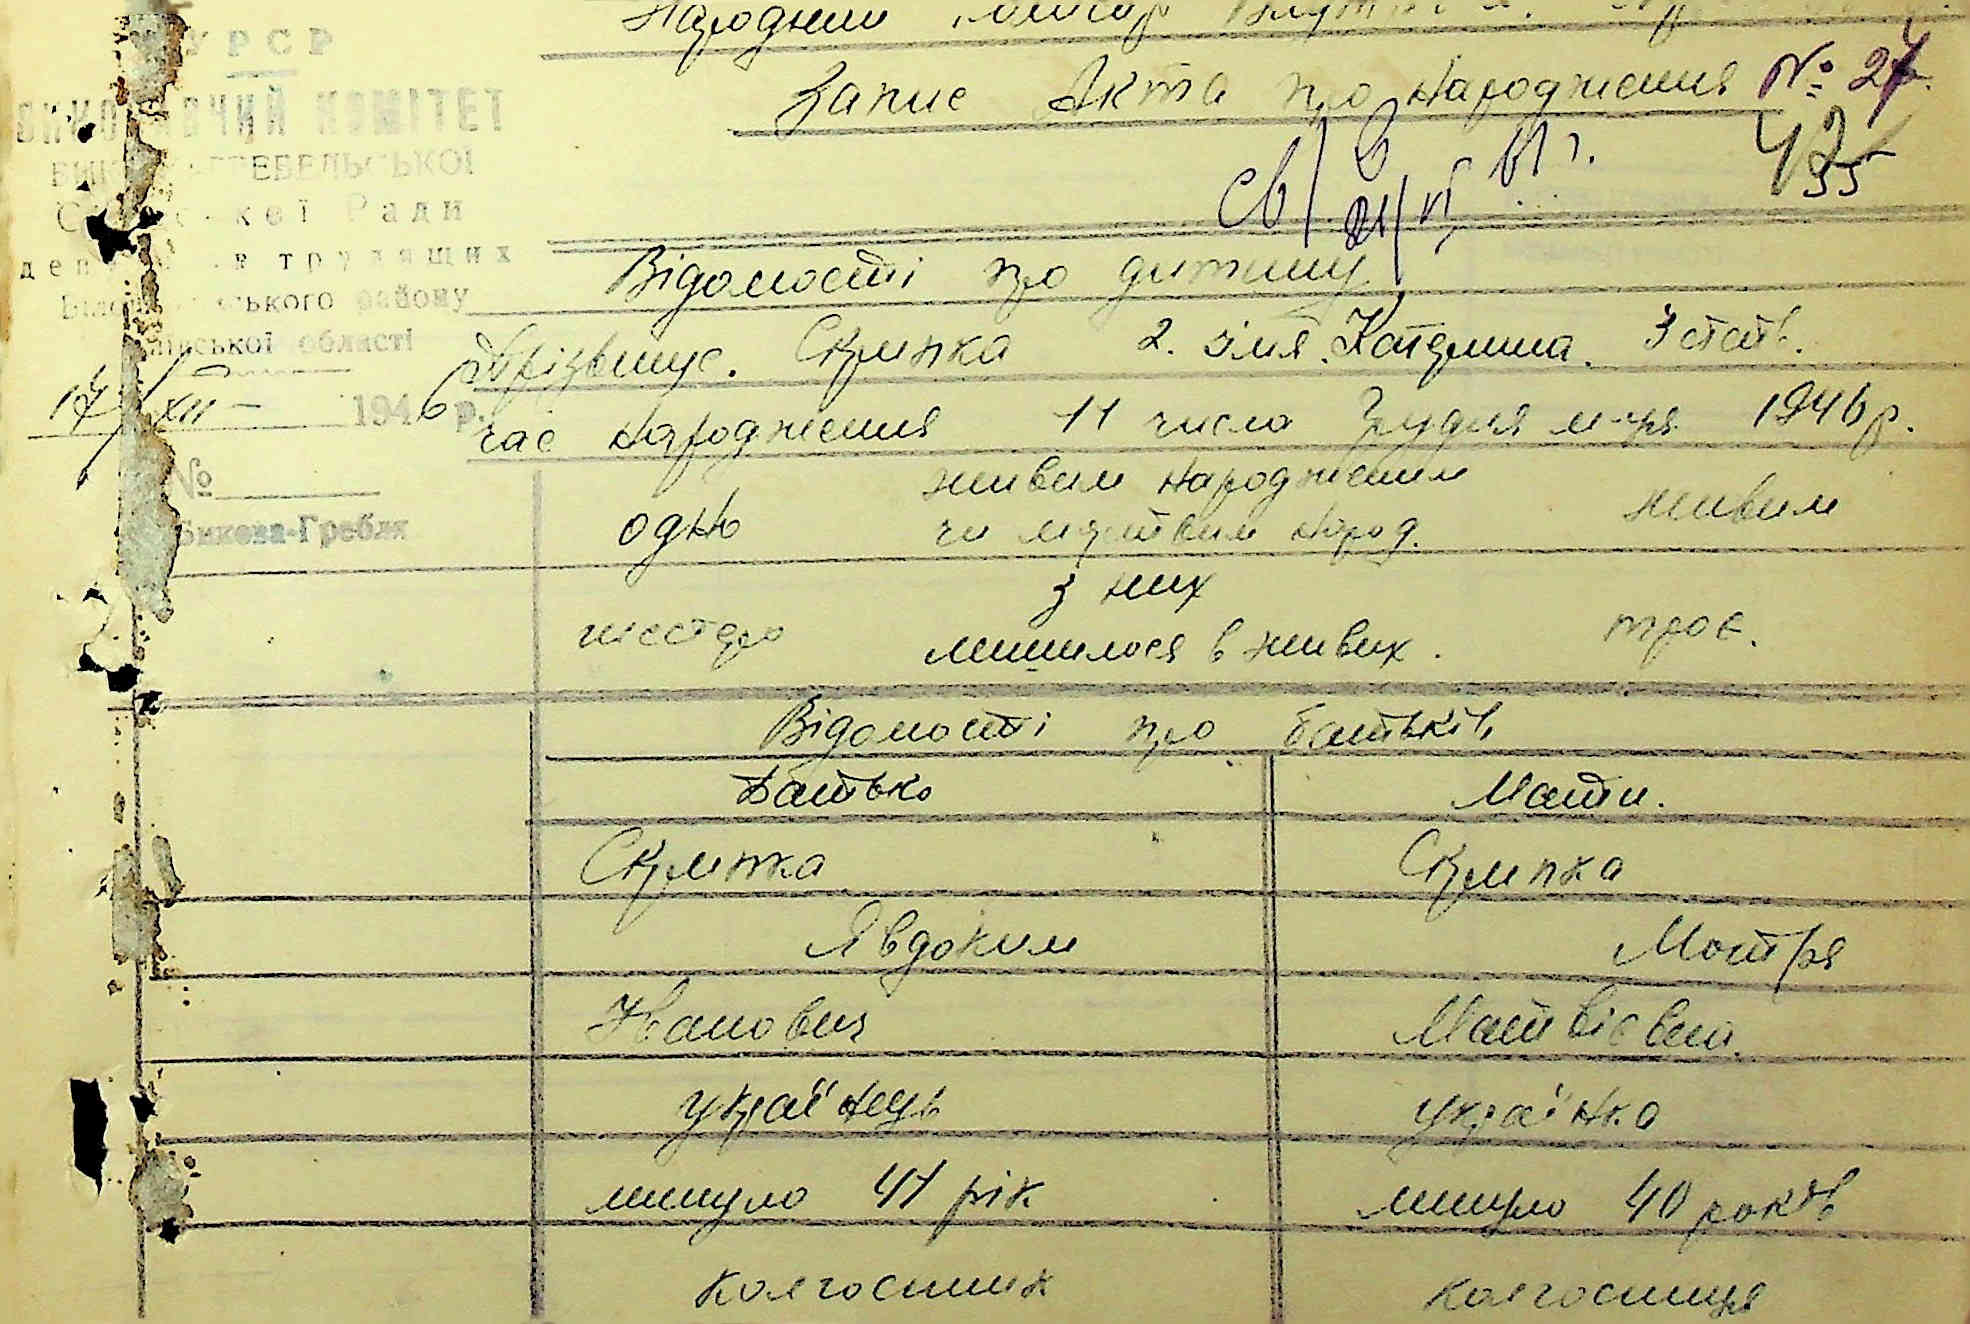 УРСР
ВИКОНАВЧИЙ КОМІТЕТ
Сільської Ради
депутатів трудящих
ського району
ської області
17/XII 1946 р.
№
Бикова-Гребля
Народний
Запис Акта про народження № 27
Св
Відомості про дитину
Прізвище. Скрипка 2. імя. Катерина. 3 стать.
час народження 11 числа Грудня м-ця 1946 р.
одно живим народженим живим
чи мертвим народ.
з них
шестеро лишилося в живих. троє.
Відомості про батьків
Батько Мати.
Скрипка Скрипка
Явдоким Мотря
Іванович Матвієвна
українець українка
минуло 41 рік минуло 40 років
колгоспник колгоспниця